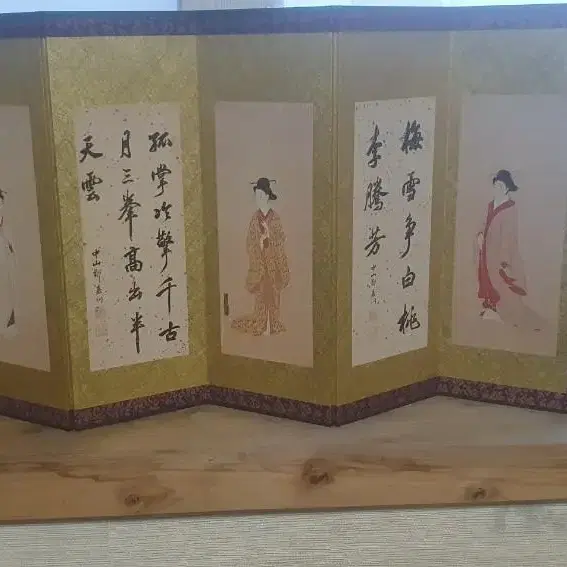 梅雪争白桃
李騰芳
中山
孤掌冷擎千古
月三峯高出半
天雲
中山